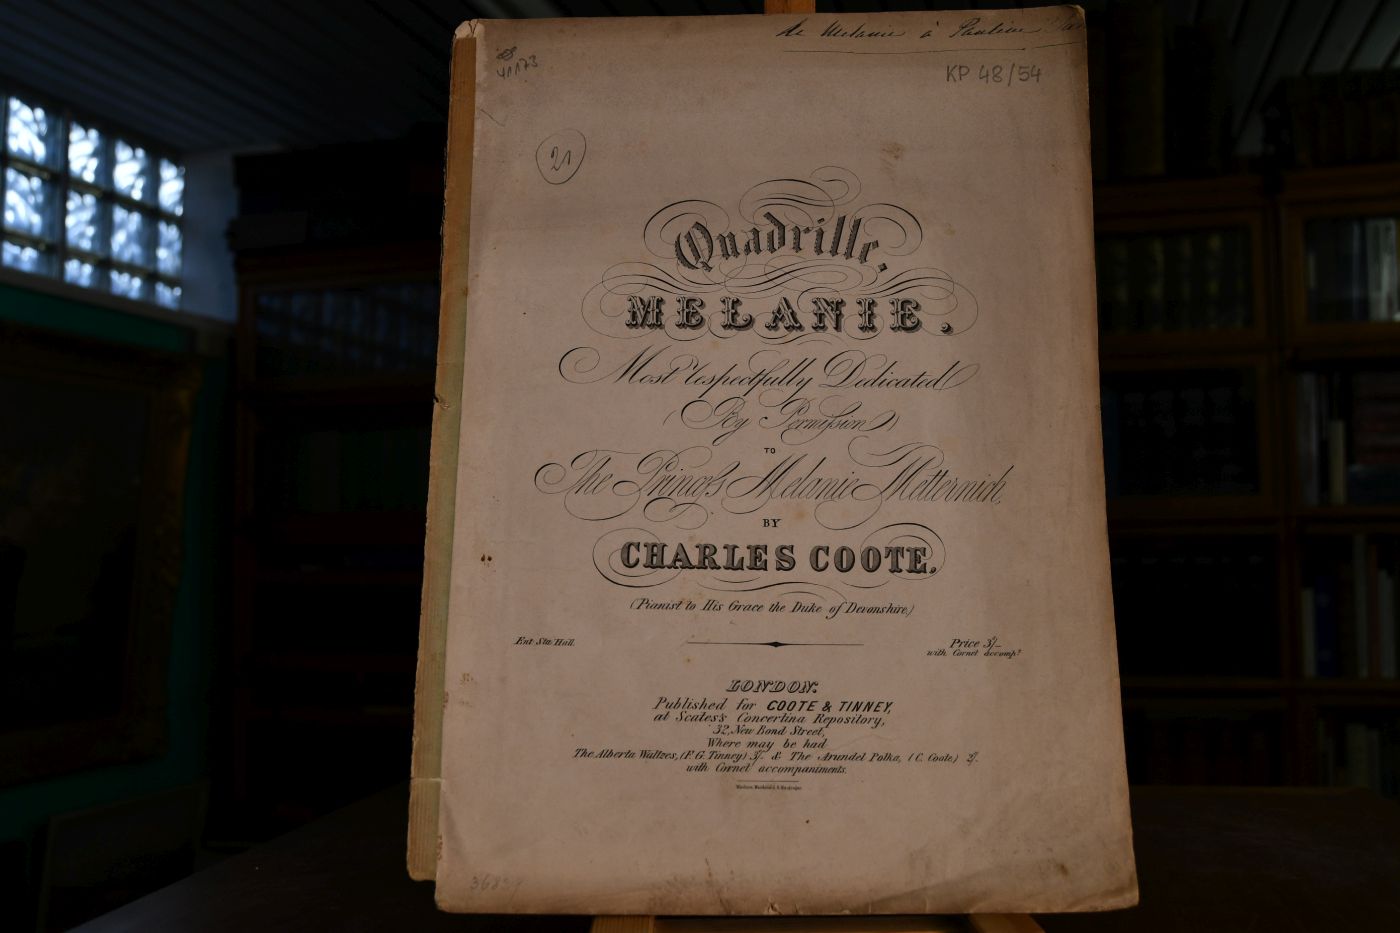 de Melanie à Pauline
41173
KP 48/54
21
Quadrille,
MELANIE.
Most respectfully Dedicated
By Permission
TO
The Princess Melanie Metternich,
BY
CHARLES COOTE,
(Pianist to His Grace the Duke of Devonshire.)
Ent. Sta. Hall.
Price 3/_
with Cornet accompt.
LONDON:
Published for COOTE & TINNEY,
at Scates's Concertina Repository,
32, New Bond Street,
Where may be had
The Alberta Waltzes, (F. G. Tinney) 3/_ & The Arundel Polka, (C. Coote.) 2/_
with Cornet accompaniments.